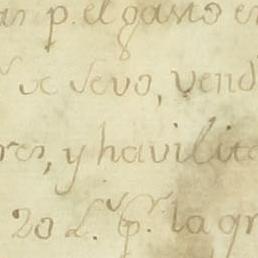 an p. el gasto en
se llevo, vend
res, y havilita
20 L.s p.r la gr